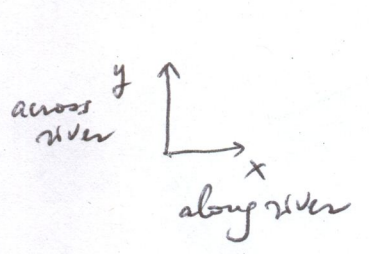 y
across
river
x
along river